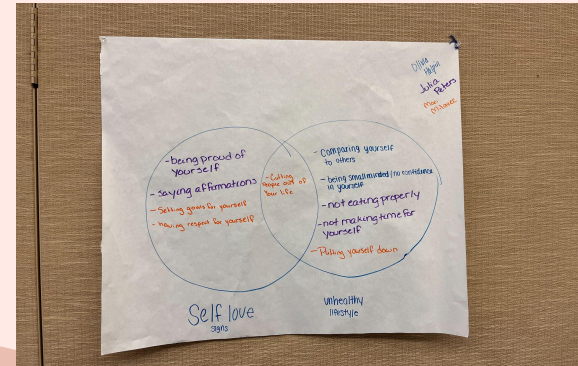 Olivia
Julia
Peters
-being proud of
yourself
-saying affirmations
- Setting goals for yourself
- having respect for yourself
-Cutting
people out of
your life
- Comparing yourself
to others
- being smallminded/no confidence
in yourself
-not eating properly
-not making time for
yourself
-Putting yourself down
Self love
signs
unhealthy
lifestyle